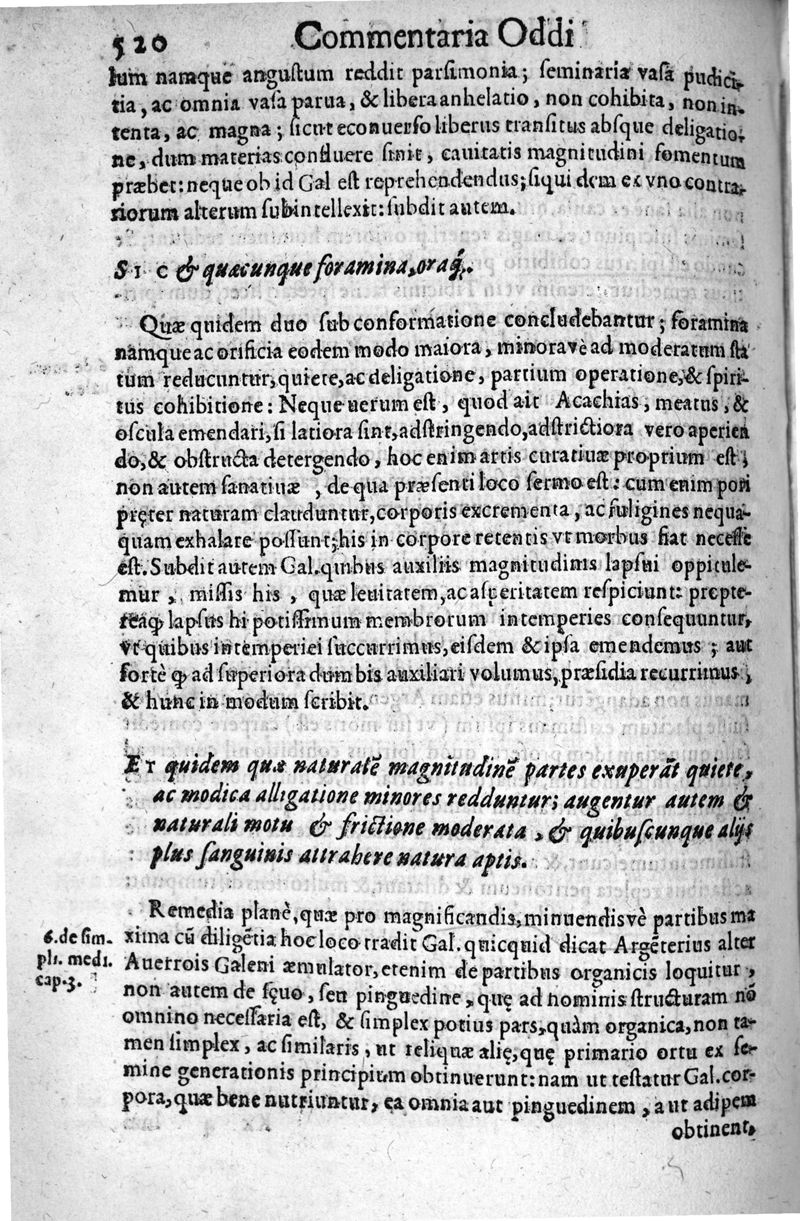 520 Commentaria Oddi
lum namque angustum reddit parsimonia; seminaria vasa pudici-
tia, ac omnia vasa parua, & libera anhelatio, non cohibita, non in-
tenta, ac magna; sicut econuerso liberus transitus absque deligatio-
ne, dum materias confluere sinit, cauitatis magnitudini fomentum
præbet: neque ob id Gal est reprehendendus; siqui dem ex vno contra-
riorum alterum subintellexit: subdit autem.
SIC & quæcunque foramina, oraq́;.
Quæ quidem duo sub conformatione concludebantur; foramina
namque ac orificia eodem modo maiora, minoravè ad moderatum sta
tum reducuntur, quiete, ac deligatione, partium operatione, & spiri-
tus cohibitione: Neque uerum est, quod ait Acachias, meatus, &
oscula emendari, si latiora sint, adstringendo, adstrictiora vero aperien
do, & obstructa detergendo, hoc enim artis curatiuæ proprium est,
non autem sanatiuæ, de qua præsenti loco sermo est: cum enim pori
pręter naturam clauduntur, corporis excrementa, ac fuligines nequa-
quam exhalare possunt; his in corpore retentis vt morbus fiat necesse
est. Subdit autem Gal. quibus auxiliis magnitudinis lapsui oppitule-
mur, missis his, quæ leuitatem, ac asperitatem respiciunt: propte-
reaq; lapsus hi potissimum membrorum intemperies consequuntur,
vt quibus intemperiei succurrimus, eisdem & ipsa emendemus; aut
fortè q; ad superiora dum bis auxiliari volumus, præsidia recurrimus,
& hunc in modum scribit.
ET quidem quæ naturalẽ magnitudinẽ partes exuperãt quiete,
ac modica alligatione minores redduntur; augentur autem &
naturali motu & frictione moderata, & quibuscunque alijs
plus sanguinis attrahere natura aptis.
Remedia planè, quæ pro magnificandis, minuendisvè partibus ma
6. de sim-
pli. medi.
cap. 3.
xima cũ diligẽtia hoc loco tradit Gal. quicquid dicat Argẽterius alter
Auerrois Galeni æmulator, etenim de partibus organicis loquitur,
non autem de sęuo, seu pinguedine, quę ad nominis structuram nõ
omnino necessaria est, & simplex potius pars, quàm organica, non ta-
men simplex, ac similaris, ut reliquæ alię, quę primario ortu ex se-
mine generationis principium obtinuerunt: nam ut testatur Gal. cor-
pora, quæ bene nutriuntur, ea omnia aut pinguedinem, aut adipem
obtinent,